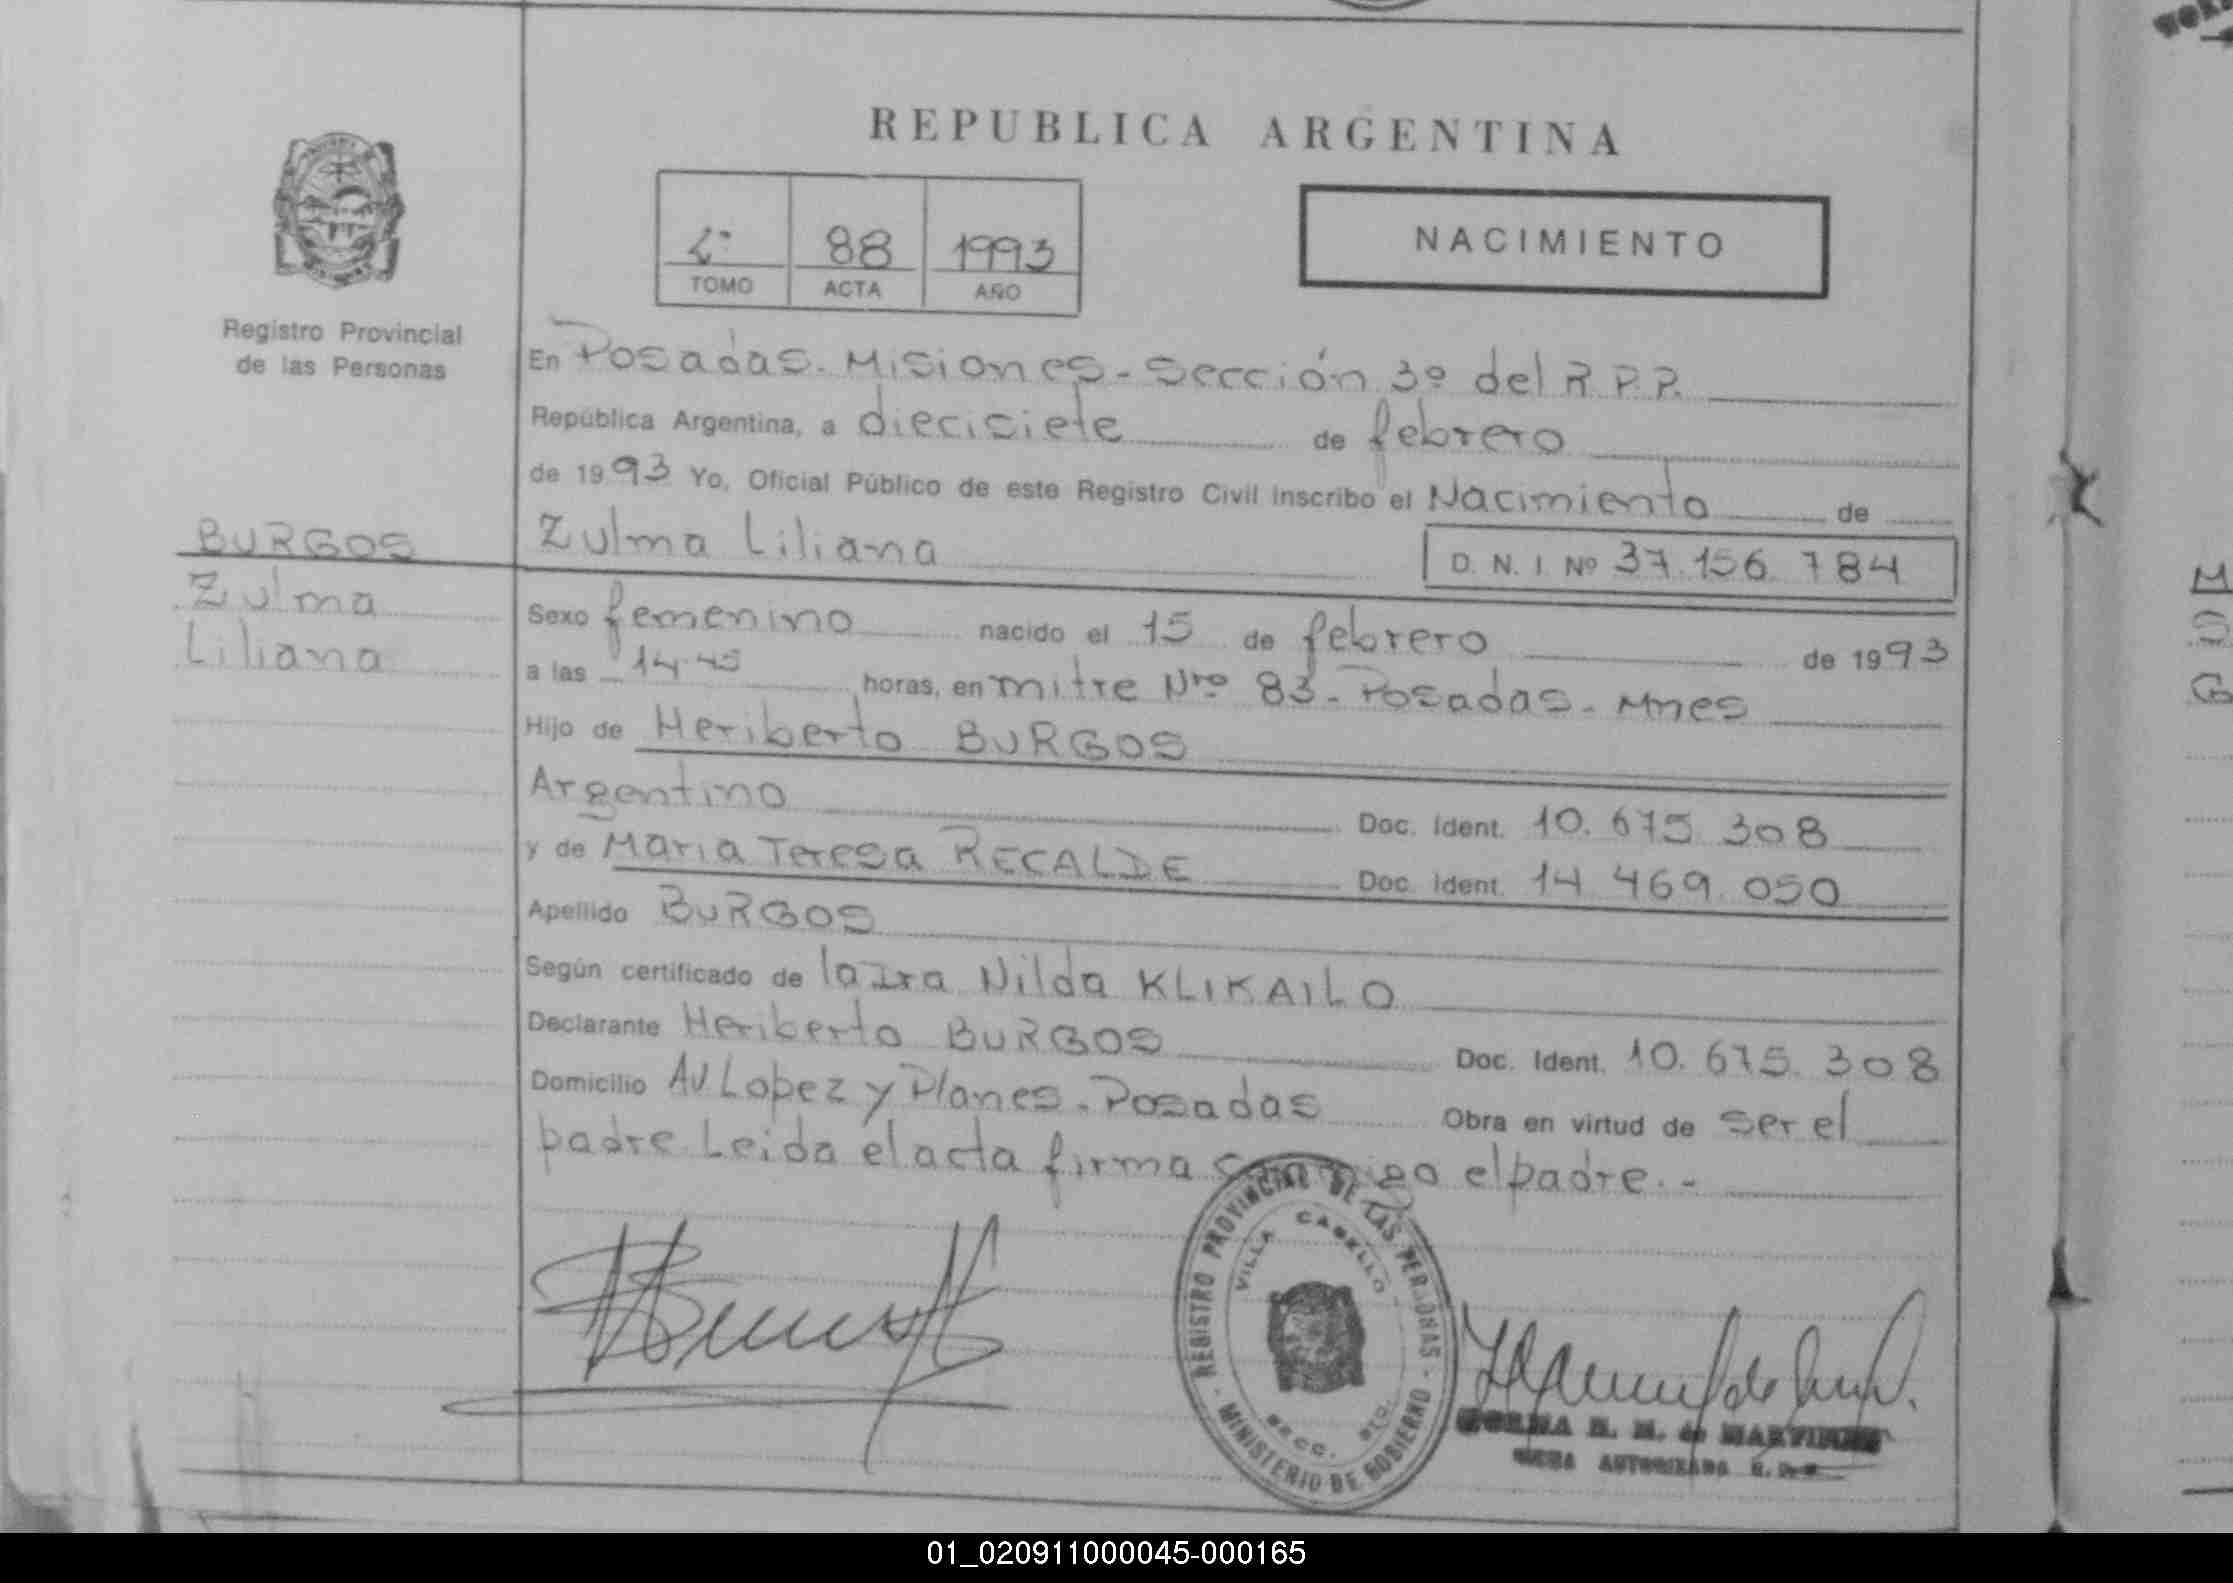 REPUBLICA ARGENTINA
88 1993
TOMO ACTA AÑO
NACIMIENTO
Registro Provincial
de las Personas
En Posadas. Misiones - Sección 3º del R.P.P.
República Argentina, a diecisiete de febrero
de 1993 Yo, Oficial Público de este Registro Civil inscribo el Nacimiento de
Zulma Liliana D. N. I. Nº 37.156.784
BURGOS
Zulma
Liliana
Sexo femenino nacido el 15 de febrero de 1993
a las 14.45 horas, en mitre Nro 83 - Posadas - Mnes
Hijo de Heriberto BURGOS
Argentino Doc. Ident. 10.675.308
y de Maria Teresa RECALDE Doc. Ident. 14.469.050
Apellido BURGOS
Según certificado de la Nilda KLIKAILO
Declarante Heriberto BURGOS Doc. Ident. 10.675.308
Domicilio Av. Lopez y Planes - Posadas Obra en virtud de ser el
padre. Leida el acta firma conmigo el padre. -
REGISTRO PROVINCIAL DE LAS PERSONAS
VILLA CABELLO
MINISTERIO DE GOBIERNO
NORMA de MARTINEZ
AUTORIZADA
01_020911000045-000165